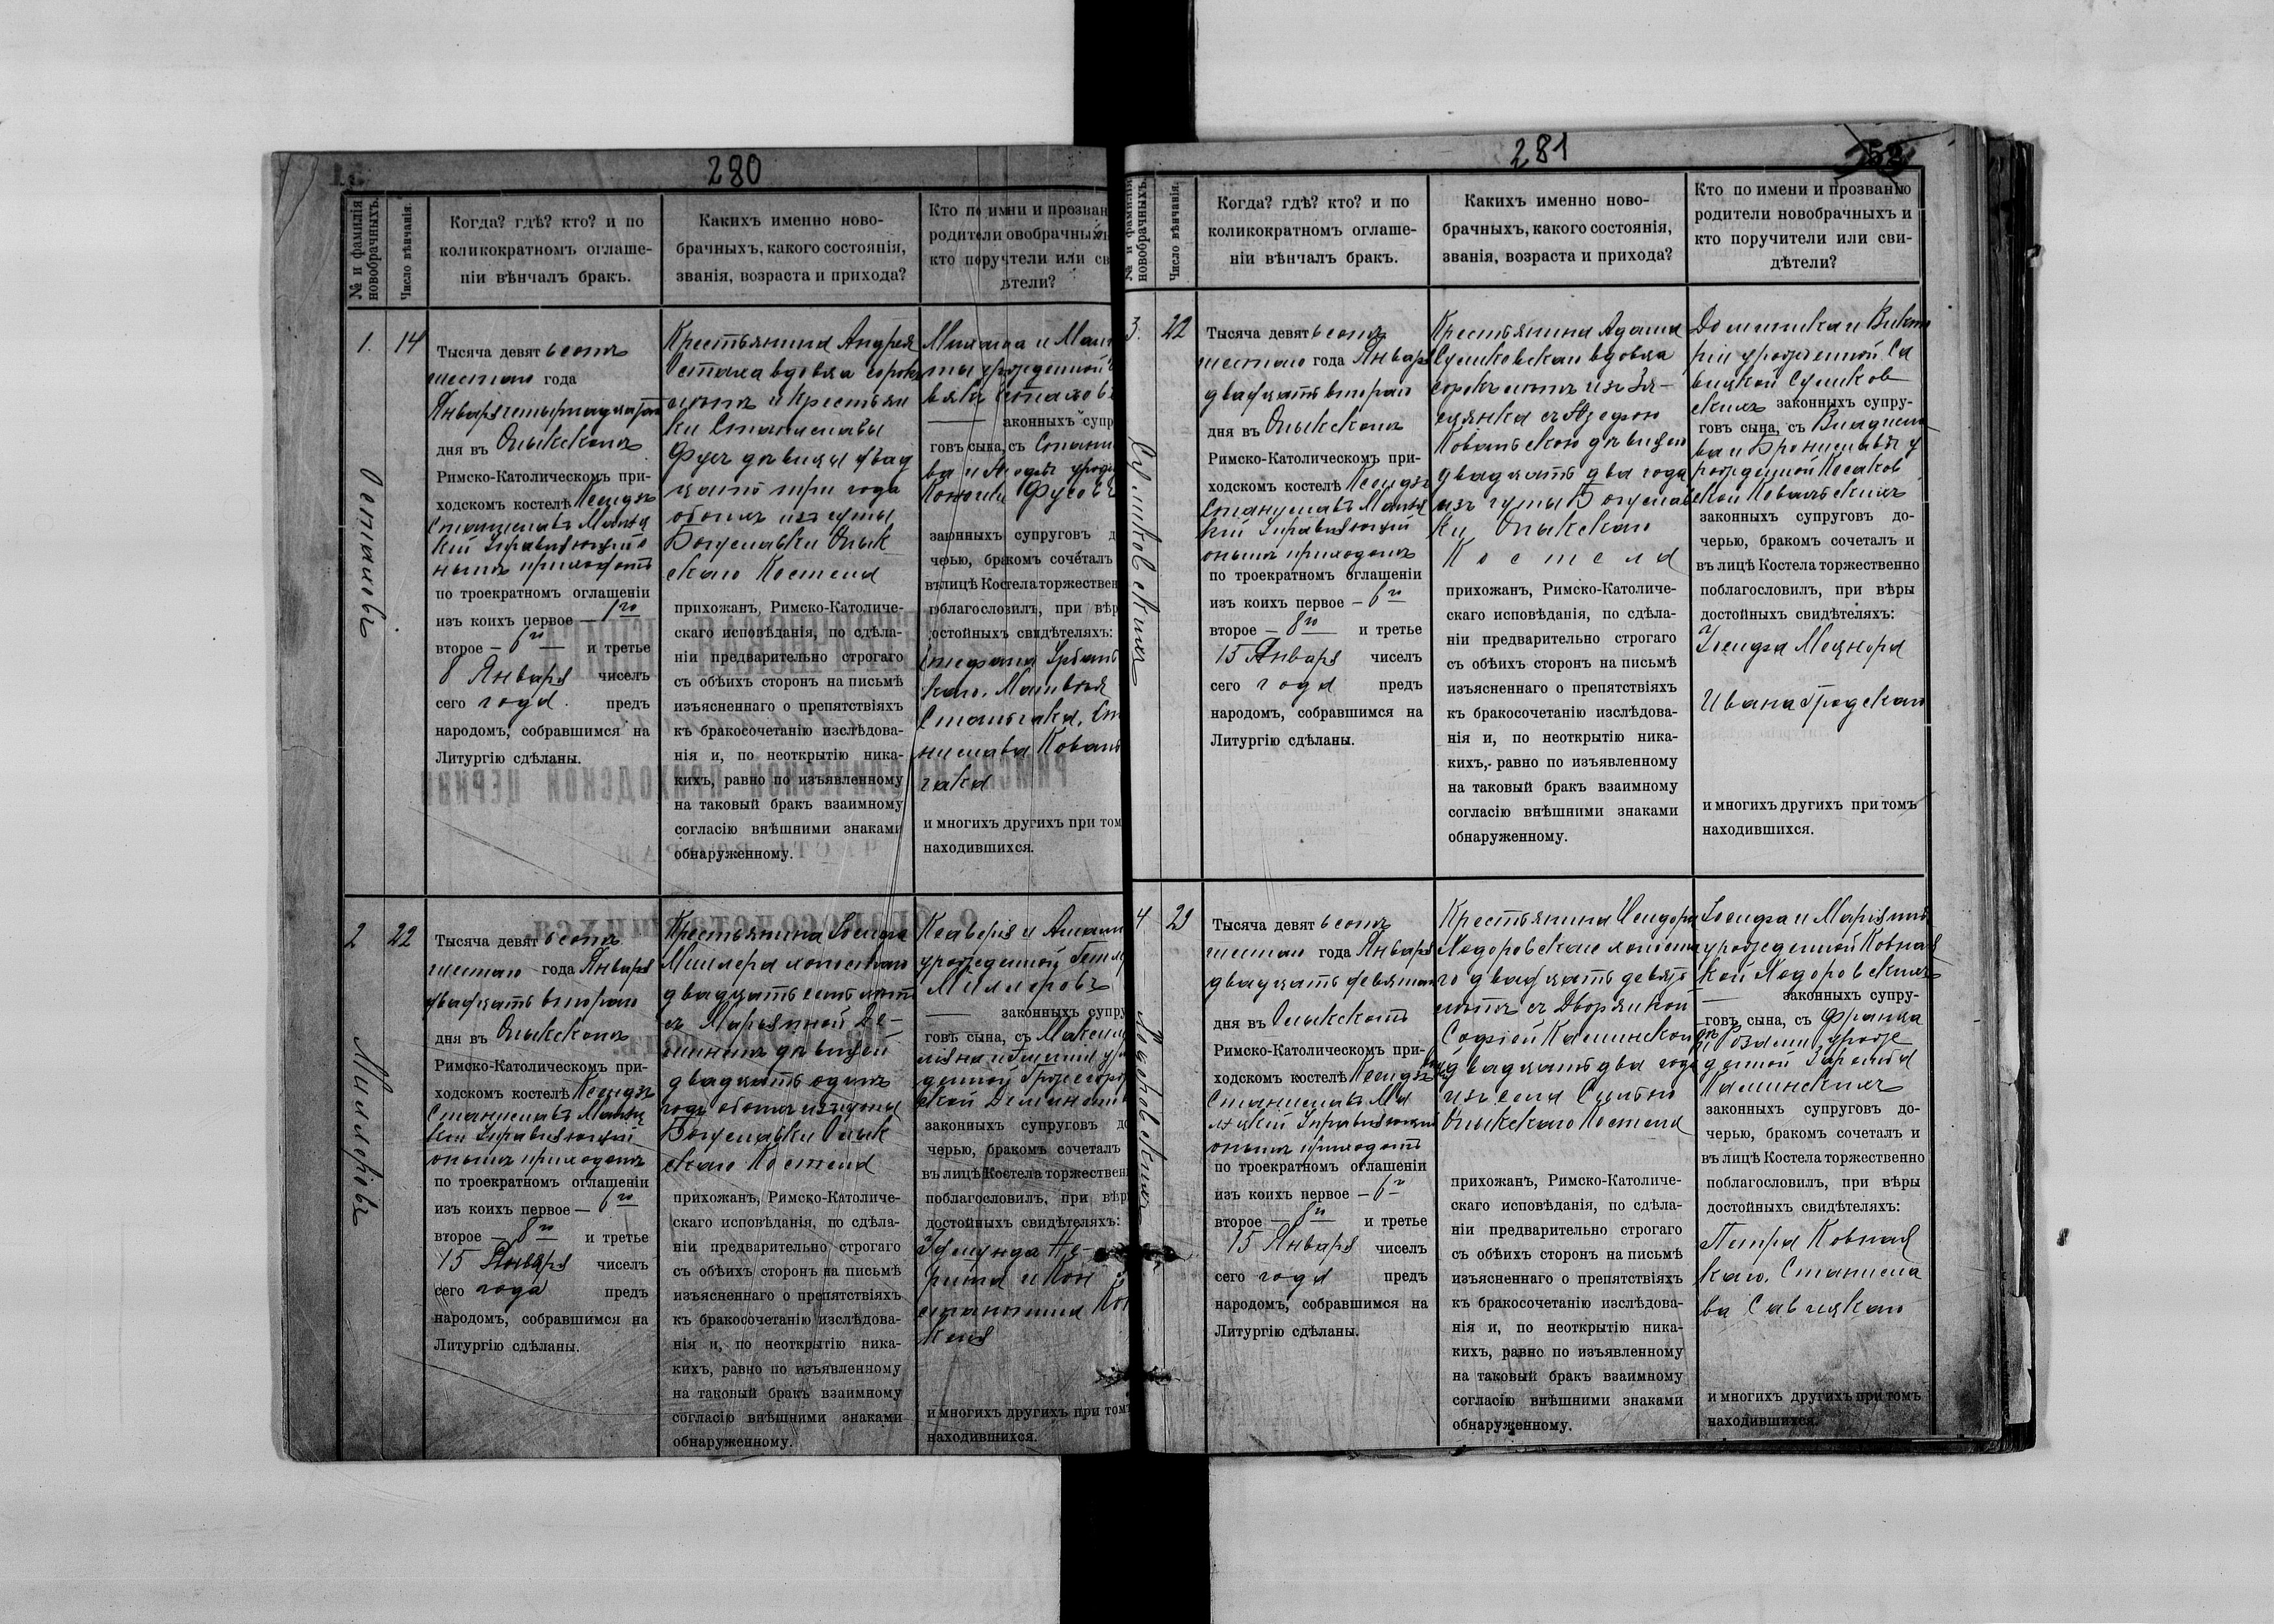 280
№ и фамилія новобрачныхъ.
Число вѣнчанія.
Когда? гдѣ? кто? и по
коликократномъ оглаше-
ніи вѣнчалъ бракъ.
Какихъ именно ново-
брачныхъ, какого состоянія,
званія, возраста и прихода?
Кто по имени и прозван
родители овобрачныхъ
кто поручтели или св
дѣтели?
1.
14
Тысяча девятьсотъ
шестаго года
Января четырнадцатаго
дня въ Олыкскомъ
Римско-Католическомъ при-
ходскомъ костелѣ Ксендзъ
Станиславъ
по троекратномъ оглашеніи
изъ коихъ первое — 1го
второе — 6го — и третье
8 Января чиселъ
сего года. предъ
народомъ, собравшимся на
Литургію сдѣланы.
Крестьянина Андрея
Остаха вдовца сорока
лѣтъ и Крестьян
ки Станиславы
Фусъ дѣвицы двад
цати три года
обоихъ изъ гмины
Божиславки Олык
скаго Костела
прихожанъ, Римско-Католиче-
скаго исповѣданія, по сдѣла-
ніи предварительно строгаго
съ обѣихъ сторонъ на письмѣ
изъясненнаго о препятствіяхъ
къ бракосочетанію изслѣдова-
нія и, по неоткрытію ника-
кихъ, равно по изъявленному
на таковый бракъ взаимному
согласію внѣшними знаками
обнаруженному.
рожденной
аконныхъ супр
говъ сына, съ Стани
Фусовъ
законныхъ супруговъ д
черью, бракомъ сочеталъ
въ лицѣ Костела торжествен
поблагословилъ, при вѣр
остойныхъ свидѣтеляхъ:
Стефана Урбанс
каго, Матвѣя
нислава Коваль
чака
и многихъ другихъ при том
находившихся.
2
22
Миллеровъ
Тысяча девятьсотъ
шестаго года Января
двадцать втораго
дня въ Олыкскомъ
Римско-Католическомъ при-
ходскомъ костелѣ Ксендзъ
Станиславъ
Управляющій
онымъ приходомъ
по троекратномъ оглашеніи
изъ коихъ первое — 6го
второе — 8го и третье
15 Января чиселъ
сего года предъ
народомъ, собравшимся на
Литургію сдѣланы.
Крестьянина Іосифа
Миллера холостаго
двадцать семь лѣтъ
съ Марьянной
дѣвицей
двадцать одинъ
годъ обоихъ изъ гмины
Божиславки Олык
скаго Костела
прихожанъ, Римско-Католиче-
скаго исповѣданія, по сдѣла-
ніи предварительно строгаго
съ обѣихъ сторонъ на письмѣ
изъясненнаго о препятствіяхъ
къ бракосочетанію изслѣдова-
нія и, по неоткрытію ника-
кихъ, равно по изъявленному
на таковый бракъ взаимному
согласію внѣшними знаками
обнаруженному.
Ксаверія и Анны
урожденной
Миллеровъ
законныхъ супру
говъ сына, съ Максими
законныхъ супруговъ до
черью, бракомъ сочеталъ
въ лицѣ Костела торжествен
поблагословилъ, при вѣр
достойныхъ свидѣтеляхъ:
и многихъ другихъ при томъ
находившихся.
281
№ и фамилія новобрачныхъ.
Число вѣнчанія.
Когда? гдѣ? кто? и по
коликократномъ оглаше-
ніи вѣнчалъ бракъ.
Какихъ именно ново-
брачныхъ, какого состоянія,
званія, возраста и прихода?
Кто по имени и прозванію
родители новобрачныхъ и
кто поручители или сви-
дѣтели?
3.
22
Сушковскихъ
Тысяча девятьсотъ
шестаго года Января
двадцать втораго
дня въ Олыкскомъ
Римско-Католическомъ при-
ходскомъ костелѣ Ксендзъ
Станиславъ
Управляющій
онымъ приходомъ
по троекратномъ оглашеніи
изъ коихъ первое — 6го
второе — 8го и третье
15 Января чиселъ
сего года предъ
народомъ, собравшимся на
Литургію сдѣланы.
Крестьянина Адама
Сушковскаго вдовца
сорокъ лѣтъ изъ
Ковальскою дѣвицею
двадцать два года
изъ гмины Божислав
ки Олыкскаго
Костела
прихожанъ, Римско-Католиче-
скаго исповѣданія, по сдѣла-
ніи предварительно строгаго
съ обѣихъ сторонъ на письмѣ
изъясненнаго о препятствіяхъ
къ бракосочетанію изслѣдова-
нія и, по неоткрытію ника-
кихъ, равно по изъявленному
на таковый бракъ взаимному
согласію внѣшними знаками
обнаруженному.
Доминика и Викто
ріи урожденной Са
вицкой Сушков
скихъ законныхъ супру-
говъ сына, съ Владисла
ва и Брониславы у
рожденной Косаков
ской Ковальскихъ
законныхъ супруговъ до-
черью, бракомъ сочеталъ и
въ лицѣ Костела торжественно
поблагословилъ, при вѣры
достойныхъ свидѣтеляхъ:
Іосифа
Ивана Гродскаго
и многихъ другихъ при томъ
находившихся.
4
29
Ходоровскихъ
Тысяча девятьсотъ
шестаго года Января
двадцать девятаго
дня въ Олыкскомъ
Римско-Католическомъ при-
ходскомъ костелѣ Ксендзъ
Станиславъ
Управляющій
онымъ приходомъ
по троекратномъ оглашеніи
изъ коихъ первое — 6го
второе — 8го и третье
15 Января чиселъ
сего года предъ
народомъ, собравшимся на
Литургію сдѣланы.
Крестьянина Исидора
Ходоровскаго холоста
го двадцать девять
лѣтъ съ Дворянкой
Софіей Каминской
двадцать два года
изъ села
Олыкскаго Костела
прихожанъ, Римско-Католиче-
скаго исповѣданія, по сдѣла-
ніи предварительно строгаго
съ обѣихъ сторонъ на письмѣ
изъясненнаго о препятствіяхъ
къ бракосочетанію изслѣдова-
нія и, по неоткрытію ника-
кихъ, равно по изъявленному
на таковый бракъ взаимному
согласію внѣшними знаками
обнаруженному.
Іосифа и Маріянны
урожденной Ковнац
кой Ходоровскихъ
законныхъ супру-
говъ сына, съ Франца
и Розаліи урож
денной Заремба
Каминскихъ
законныхъ супруговъ до-
черью, бракомъ сочеталъ и
въ лицѣ Костела торжественно
поблагословилъ, при вѣры
достойныхъ свидѣтеляхъ:
Петра Ковнац
каго, Станисла
ва Савицкаго
и многихъ другихъ при томъ
находившихся.